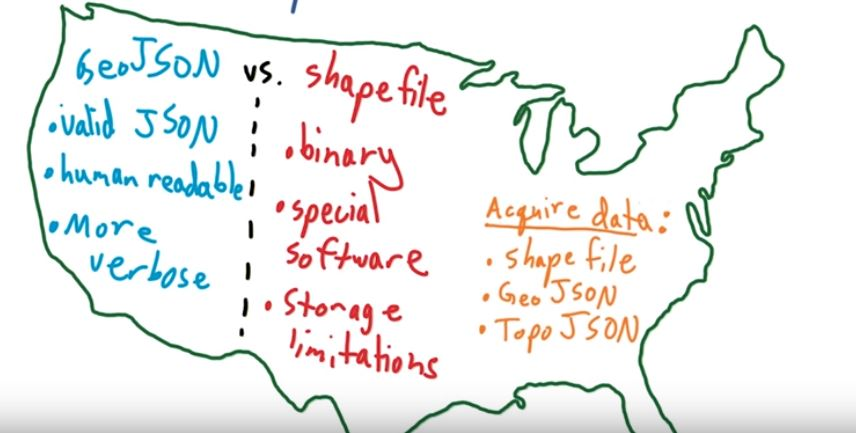 GeoJSON vs. shapefile
• valid JSON
• human readable
• More
verbose
• binary
• special
software
• Storage
limitations
Acquire data:
• shape file
• Geo JSON
• Topo JSON